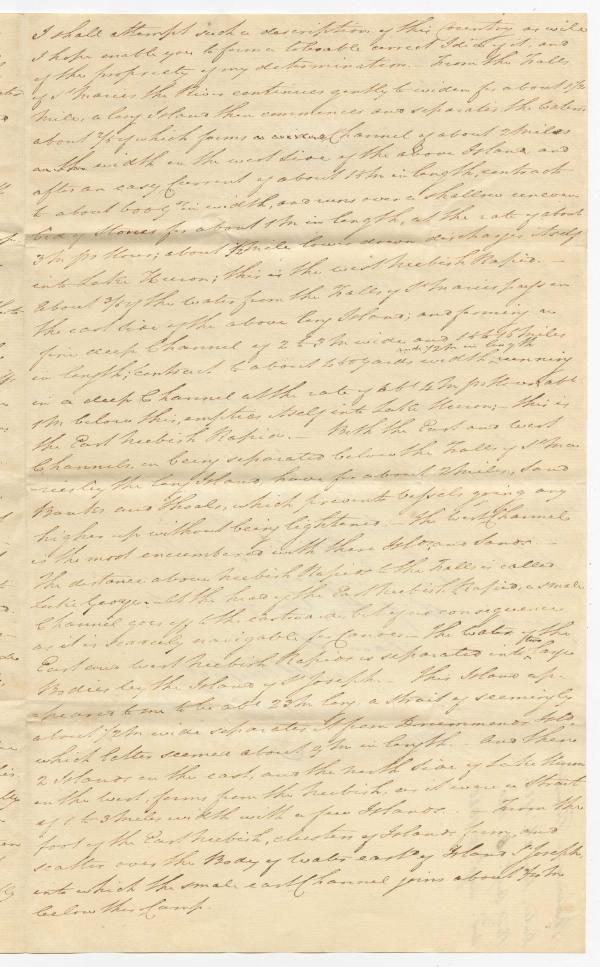 I shall attempt such a description of this Country as will
I hope enable you to form a tolerable correct Idid of it, and
of the propriety of my determination. — From the Falls
of St Maries the River continues gently to widen for about 1/2
Mile, a long Island then commences and separates the Waters
about 2/5 of which forms a Channel of about 2 Miles
width on the west side of the above Island and
after an easy Current of about 15 M in length, contract
to about 600 Yds in width, and runs over a shallow uneven
bed of Stones for about 1 M in length, at the rate of about
3 M pr Hour; about 1/2 Mile lower down discharges itself
into Lake Huron; this is the west Neebish Rapid. —
About 3/5 of the water from the Falls of St Maries pass on
the east side of the above long Island; and forming a
fine deep Channel of 2 to 3 M wide and 15 to 16 Miles
in length; contract to about 60 yards width, and 1/2 M in length running
in a deep Channel at the rate of abt 4 M pr Hour abt
1 M below this, empties itself into Lake Huron; — this is
the East Neebish Rapid. — Both the East and West
Channels, on being separated below the Falls of St Ma-
-ries by the long Island, have for about 2 Miles, Sand
Banks and Shoals, which prevents Vessels going any
higher up without being lightened. — The West Channel
is the most encumbered with these Islds and Sands. —
The distance above Neebish Rapids to the Falls is called
Lake George. — At the head of the East Neebish Rapid, a small
Channel goes off to the eastward, but of no consequence
as it is scarcely navigable for Canoes. — The Water of the
East and West Neebish Rapids is separated into two large
Bodies by the Island of St Joseph. — This Island ap-
-pears to me to be abt 23 M long, a strait of seemingly
about 1/2 M wide separates it from Drummonds Isld
which latter seemed about 9 M in length. — And these
2 Islands on the east, and the north side of Lake Huron
on the west, forms from the Neebish, as it were a Strait
of 1 to 3 Miles width with a few Islands. From the
foot of the East Neebish, clusters of Islands form, and
scatter over the Body of Water east of Island St Joseph,
into which the small east Channel joins about
below this Camp.